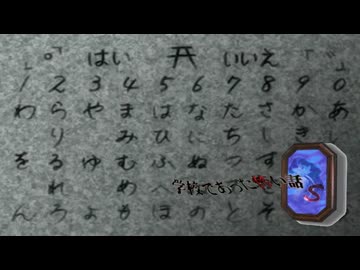 はい いいえ
1 2 3 4 5 6 7 8 9 0
わ ら や ま は な た さ か あ
り み ひ に ち し き
を る ゆ む ふ ぬ つ す
れ め へ
ん ろ よ も ほ の と そ
学校であった怖い話S